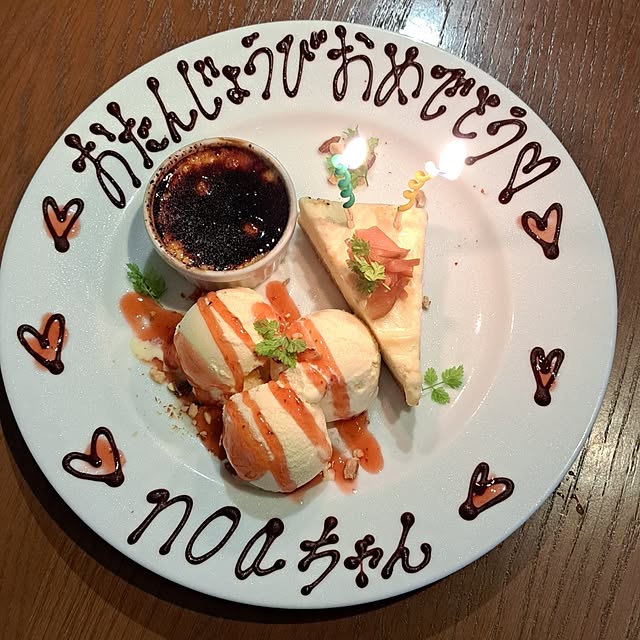 おたんじょうびおめでとう♡
noaちゃん